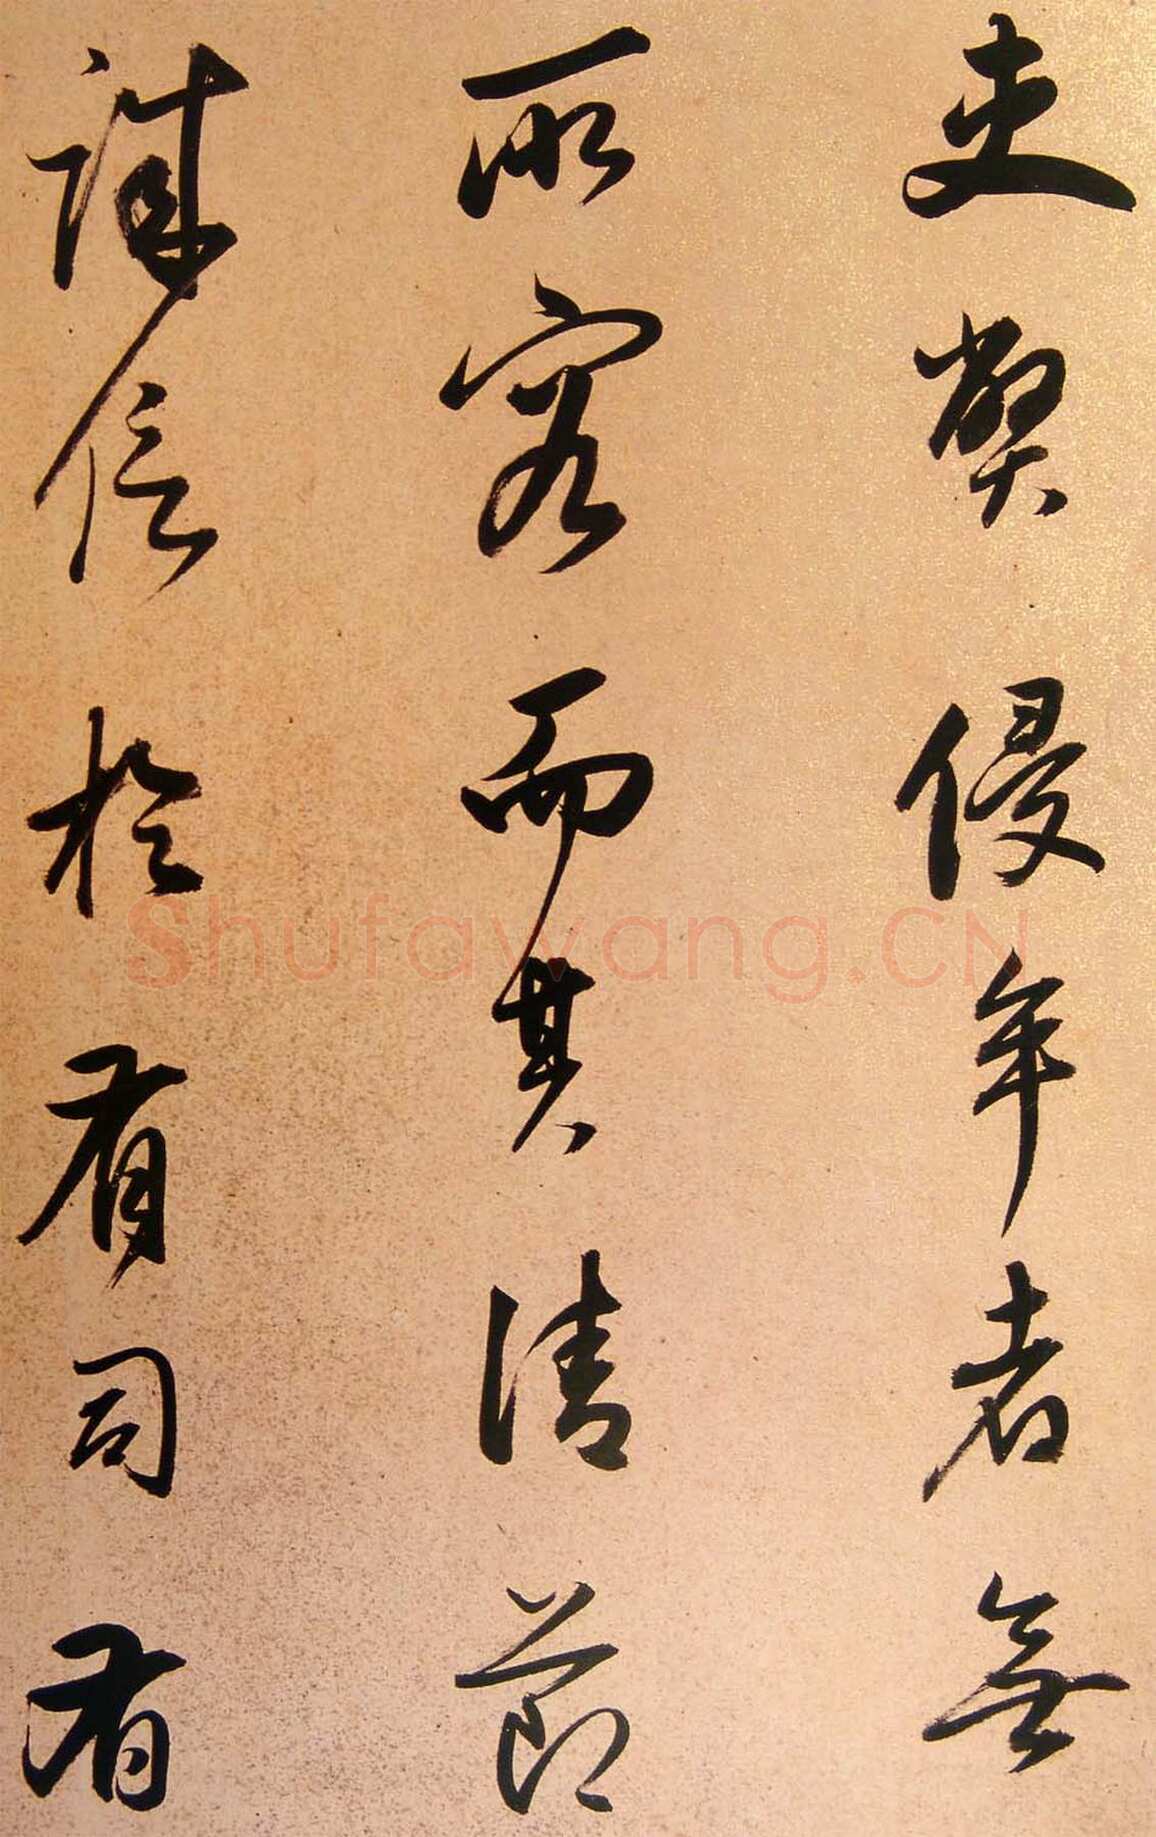 吏弊侵牟者無
所容而其清節
誠信於有司有
Shufawang.CN